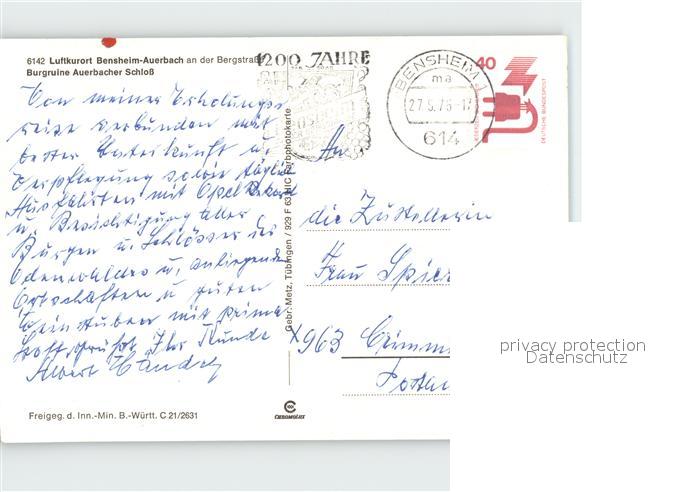 6142 Luftkurort Bensheim-Auerbach an der Bergstraße
Burgruine Auerbacher Schloß
Von meiner Erholungs
reise verbunden mit
bester Unterkunft u.
Verpflegung sowie täglich
Ausfahrten mit Opel Rekord
u. Besichtigung aller
Burgen u. Schlösser des
Odenwaldes u. anliegenden
Ortschaften u guten
Weinstuben mit prima
Stoff, grüßt Ihr Kunde
Albert
Freigeg. d. Inn.-Min. B.-Württ. C 21/2631
Gebr. Metz, Tübingen / 929 F 63 MIC Farbphotokarte
CHROMOLUX
1200 JAHRE
BENSHEIM 1
ma
27.5.76-17
614
40
DEUTSCHE BUNDESPOST
An
die Zustellerin
Frau
963
privacy protection
Datenschutz